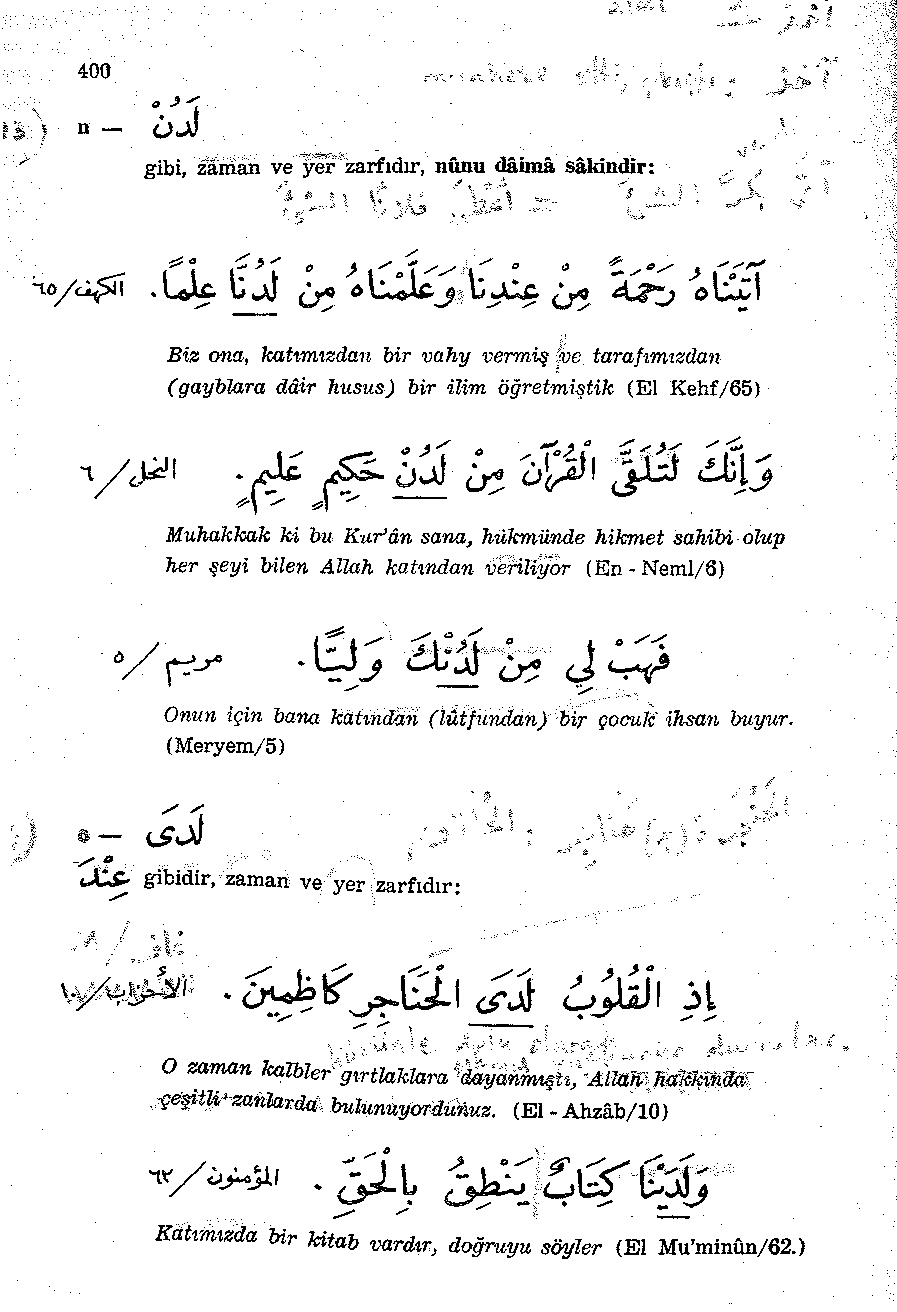 400
n — لَدُنْ
gibi, zaman ve yer zarfıdır, nûnu dâimâ sâkindir:
آتَيْنَاهُ رَحْمَةً مِنْ عِنْدِنَا وَعَلَّمْنَاهُ مِنْ لَدُنَّا عِلْمًا. الكهف/٦٥
Biz ona, katımızdan bir vahy vermiş ve tarafımızdan
(gayblara dâir husus) bir ilim öğretmiştik (El Kehf/65)
وَإِنَّكَ لَتُلَقَّى الْقُرْآنَ مِنْ لَدُنْ حَكِيمٍ عَلِيمٍ. النحل/٦
Muhakkak ki bu Kur'ân sana, hükmünde hikmet sahibi olup
her şeyi bilen Allah katından veriliyor (En - Neml/6)
فَهَبْ لِي مِنْ لَدُنْكَ وَلِيًّا. مريم/٥
Onun için bana katından (lûtfundan) bir çocuk ihsan buyur.
(Meryem/5)
o — لَدَى
عِنْدَ gibidir, zaman ve yer zarfıdır:
غافر/١٨
إِذِ الْقُلُوبُ لَدَى الْحَنَاجِرِ كَاظِمِينَ. الأحزاب/١٠
O zaman kalbler gırtlaklara dayanmıştı, Allah hakkında
çeşitli zanlarda bulunuyordunuz. (El - Ahzâb/10)
وَلَدَيْنَا كِتَابٌ يَنْطِقُ بِالْحَقِّ. المؤمنون/٦٢
Katımızda bir kitab vardır, doğruyu söyler (El Mu'minûn/62.)